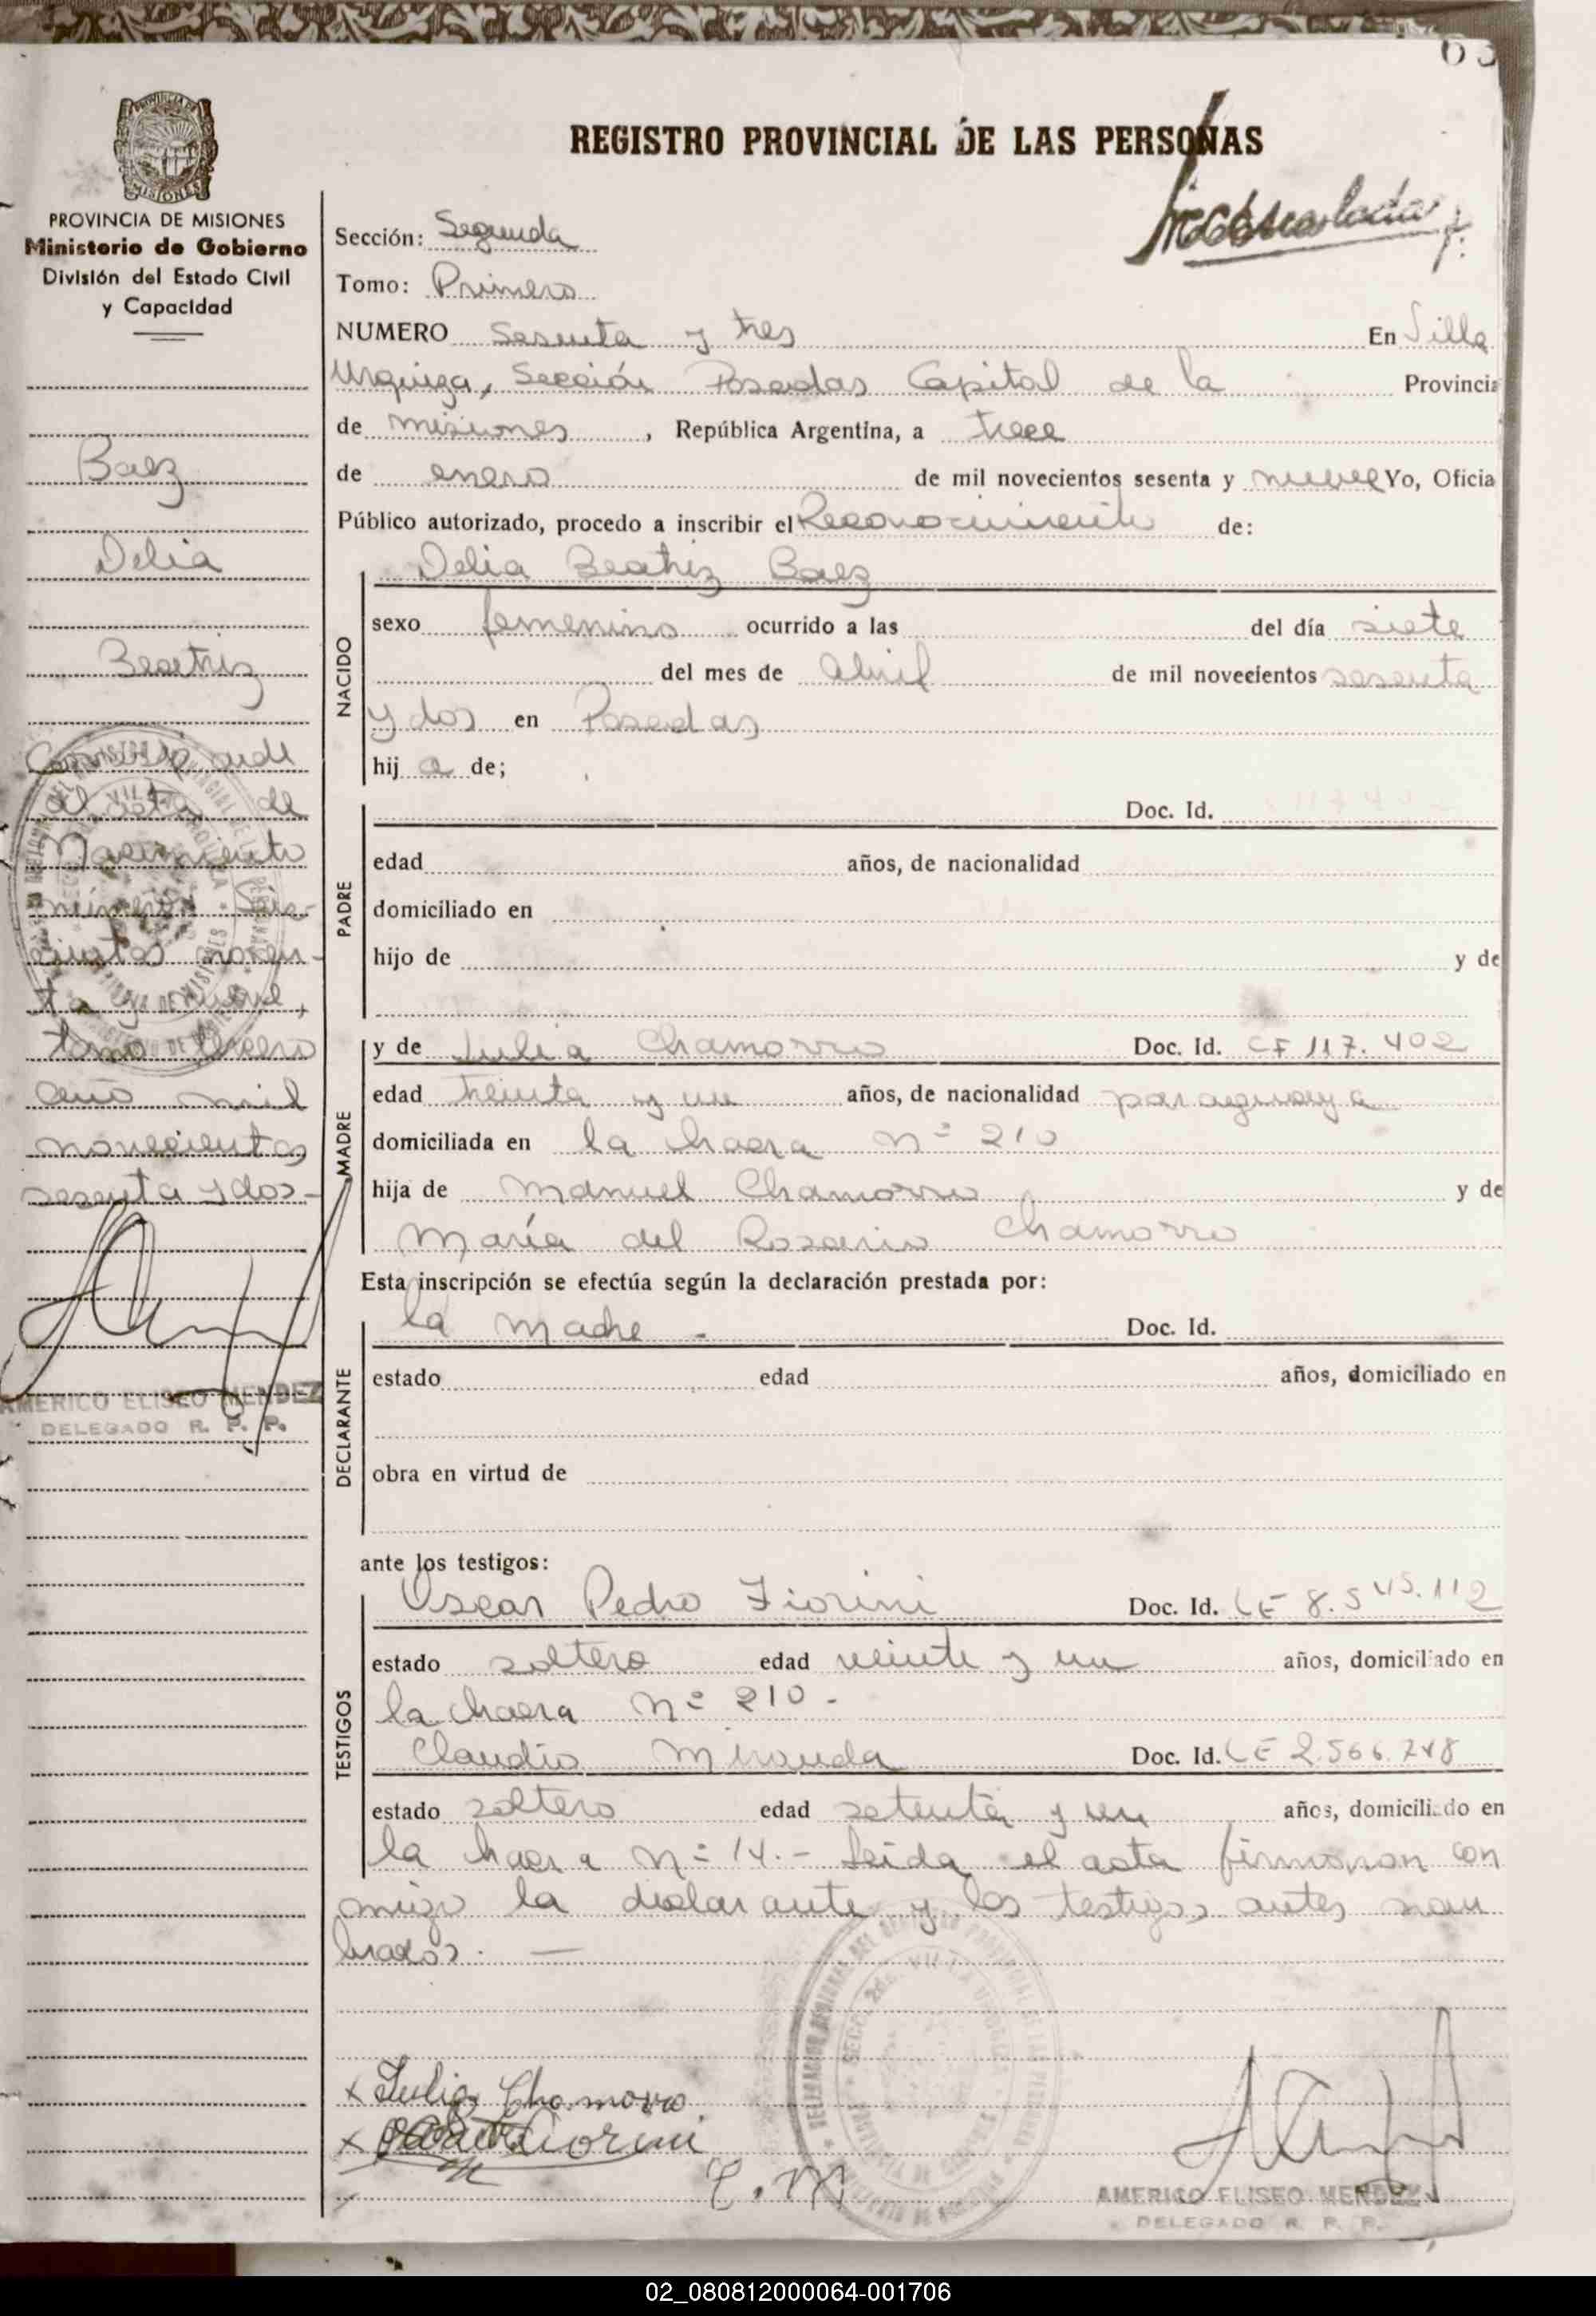 63
REGISTRO PROVINCIAL DE LAS PERSONAS
PROVINCIA DE MISIONES
Ministerio de Gobierno
División del Estado Civil
y Capacidad
Baez
Delia
Beatriz
Corresponde
al acta de
Nacimiento
número
cientos noven-
ta y nueve,
tomo tercero
año mil
novecientos
sesenta y dos-
AMERICO ELISEO MENDEZ
DELEGADO R. P. P.
Sección: Segunda
Tomo: Primero
NUMERO Sesenta y tres En Villa
Urquiza, Sección Posadas Capital de la Provincia
de misiones, República Argentina, a trece
de enero de mil novecientos sesenta y nueve Yo, Oficia
Público autorizado, procedo a inscribir el Reconocimiento de:
Delia Beatriz Baez
NACIDO
sexo femenino ocurrido a las del día siete
del mes de abril de mil novecientos sesenta
y dos en Posadas
hij a de;
PADRE
Doc. Id.
edad años, de nacionalidad
domiciliado en
hijo de y de
MADRE
y de Julia Chamorro Doc. Id. CF 117.402
edad treinta y un años, de nacionalidad paraguaya
domiciliada en la chacra Nº 210
hija de Manuel Chamorro y de
María del Rosario Chamorro
Esta inscripción se efectúa según la declaración prestada por:
DECLARANTE
la madre - Doc. Id.
estado edad años, domiciliado en
obra en virtud de
ante los testigos:
TESTIGOS
Oscar Pedro Fiorini Doc. Id. LE 8.545.112
estado soltero edad veinte y un años, domiciliado en
la chacra Nº 210 -
Claudio Miranda Doc. Id. LE 2.566.748
estado soltero edad setenta y un años, domiciliado en
la chacra Nº 14.- Leida el acta firmaron con
migo la declarante y los testigos antes nom
brados. —
x Julia Chamorro
x Fiorini
C. M
AMERICO ELISEO MENDEZ
DELEGADO R. P. P.
02_080812000064-001706